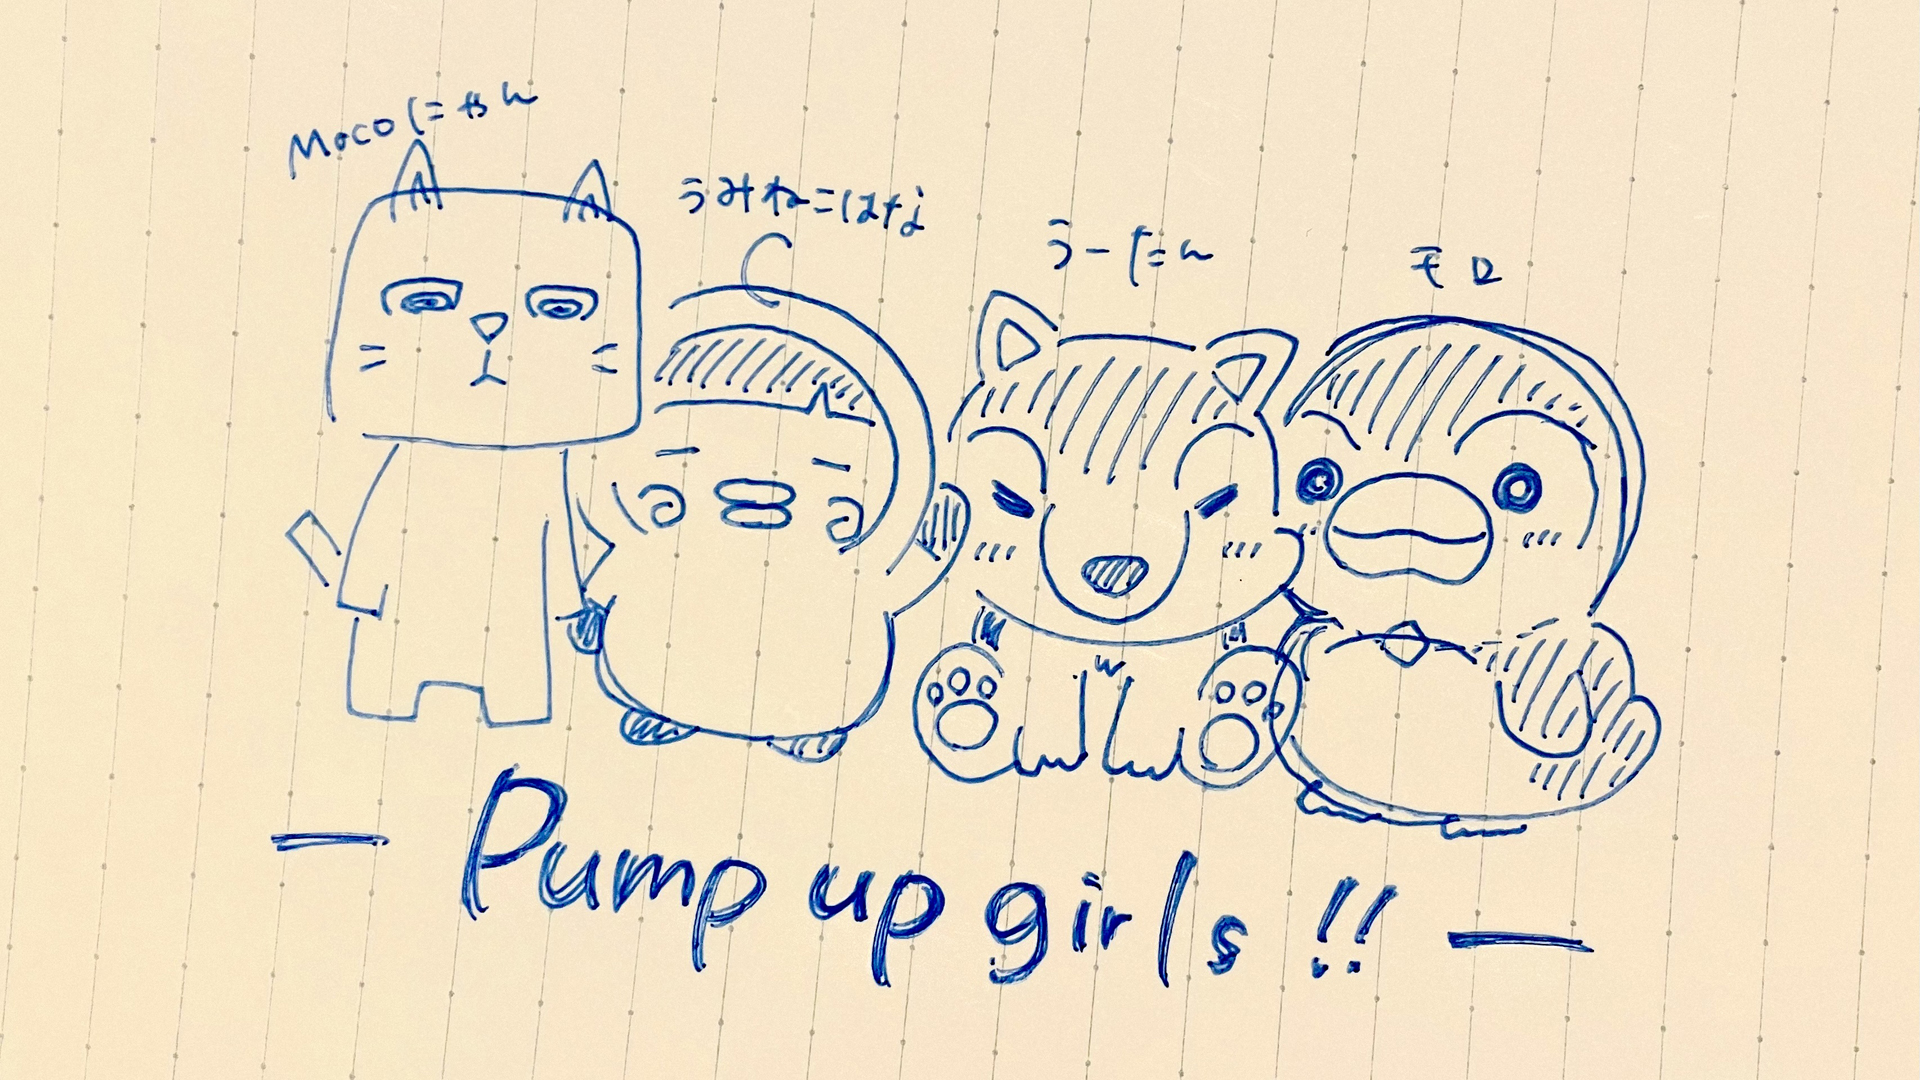 Mocoにゃん
うみねこはな
うーたん
モロ
— Pump up girls!! —